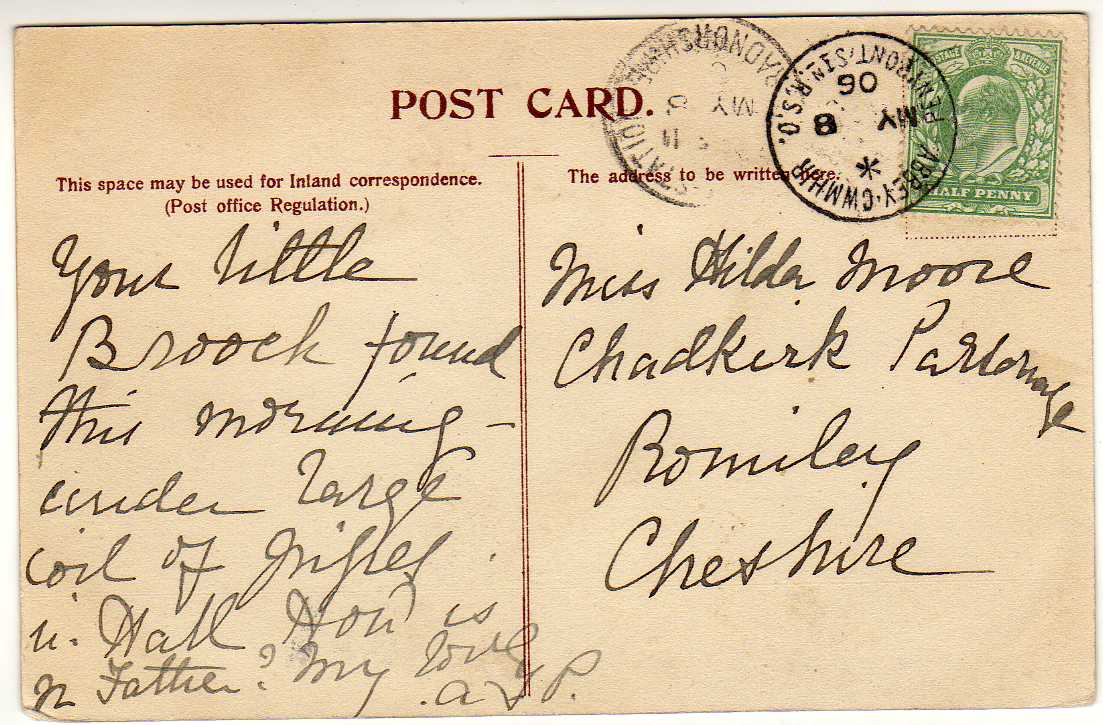 POST CARD.
This space may be used for Inland correspondence.
(Post office Regulation.)
The address to be written here.
STATION
RADNORSHIRE
MY
11
PENYBONT. STN R.S.O.
ABBEY-CWMHIR
MY 8
06
POSTAGE & REVENUE
HALF PENNY
Your little
Brooch found
this morning -
under large
coil of
in Hall How is
yr Father? My love
a P.
Miss Hilda Moore
Chadkirk Parsonage
Romiley
Cheshire